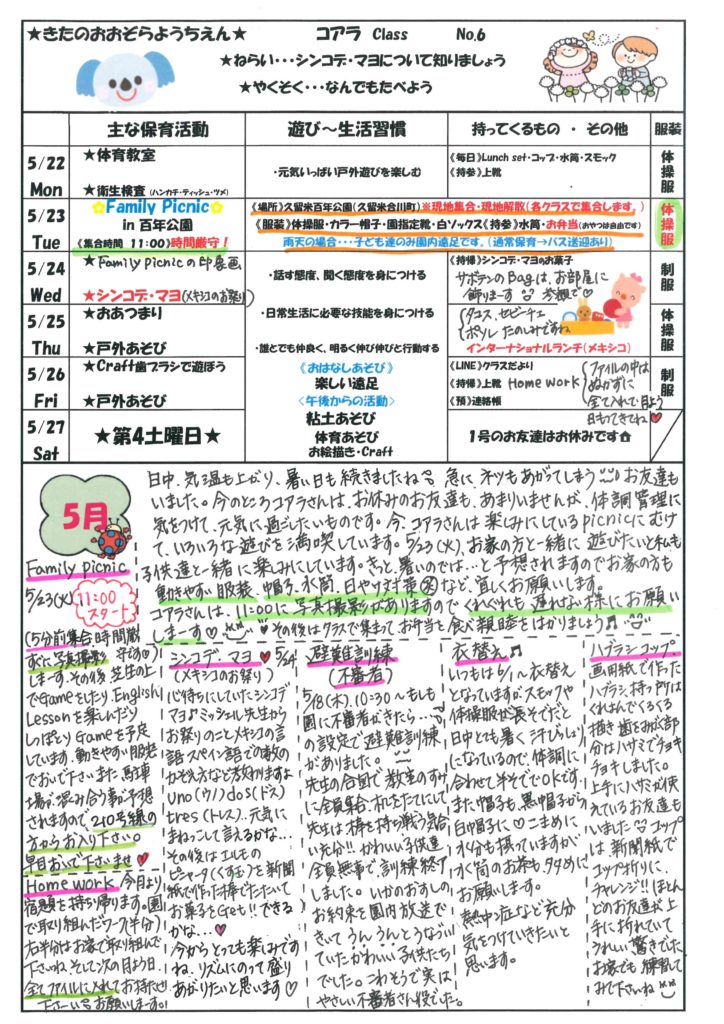 ★きたのおおぞらようちえん★
コアラ Class No.6
★ねらい・・・シンコデ・マヨについて知りましょう
★やくそく・・・なんでもたべよう
主な保育活動 遊び～生活習慣 持ってくるもの ・ その他 服装
5/22
Mon
★体育教室
★衛生検査 (ハンカチ・ティッシュ・ツメ)
・元気いっぱい戸外遊びを楽しむ
《毎日》Lunch set・コップ・水筒・スモック
《持参》上靴
体操服
5/23
Tue
Family Picnic
in 百年公園
《集合時間 11:00》時間厳守！
《場所》久留米百年公園(久留米合川町)※現地集合・現地解散(各クラスで集合します。)
《服装》体操服・カラー帽子・園指定靴・白ソックス《持参》水筒・お弁当(おやつは自由です)
雨天の場合・・・子ども達のみ園内遠足です。(通常保育→バス送迎あり)
体操服
5/24
Wed
★Family picnicの印象画
★シンコデ・マヨ(メキシコのお祭り)
・話す態度、聞く態度を身につける
《持帰》シンコデ・マヨのお菓子
サボテンのBagは、お部屋に
飾ります 参観で♡
制服
5/25
Thu
★おあつまり
★戸外あそび
・日常生活に必要な技能を身につける
・誰とでも仲良く、明るく伸び伸びと行動する
タコス、セビーチェ
ポソレ たのしみですね
インターナショナルランチ(メキシコ)
体操服
5/26
Fri
★Craft歯ブラシで遊ぼう
★戸外あそび
《おはなしあそび》
楽しい遠足
《午後からの活動》
《LINE》クラスだより
《持帰》上靴 Home work
《預》連絡帳
ファイルの中は
ぬかずに
全て入れて月よう
日もってきてね♥
制服
5/27
Sat
★第4土曜日★
粘土あそび
体育あそび
お絵描き・Craft
1号のお友達はお休みです
5月
日中、気温も上がり、暑い日も続きましたね。急に、ネツもあがってしまうお友達も
いました。今のところコアラさんは、お休みのお友達も、あまりいませんが、体調管理に
気をつけて、元気に過ごしたいものです。今、コアラさんは楽しみにしているpicnicにむけ
て、いろいろな遊びを満喫しています。5/23(火)、お家の方と一緒に遊びたいと私も
子供達と一緒に楽しみにしています。きっと、暑いのでは…と予想されますのでお家の方も
動きやすい服装、帽子、水筒、日やけ対策など、宜しくお願いします。
コアラさんは、11:00に写真撮影がありますのでくれぐれも遅れない様にお願い
しまーす♡ その後はクラスで集まってお弁当を食べ親睦をはかりましょう♪
Family picnic
5/23(火) 11:00スタート
(5分前集合 時間厳守です♡)
すぐに写真撮影
しまーす。その後 芝生の上
でGameをしたり、English
Lessonを楽しんだり
しっぽとりGameを予定
しています。動きやすい服装
でおいで下さい。また、駐車
場が混み合う事が予想
されますので210号線の
方からお入り下さい。
早目においで下さいませ♥
Home work 今月より
宿題を持ち帰ります。園
で取り組んだワーク(半分)
右半分はお家で取り組んで
下さいね。そして次の月よう日、
全てファイルに入れてお持たせ
下さーい。お願いしまーす。
シンコデ、マヨ♥5/24
(メキシコのお祭り)
心待ちにしていたシンコデ
マヨ♪ミッシェル先生から
お祭りのことやメキシコの言
語、スペイン語での数の
かぞえ方など教わりますよ
uno(ウノ)dos(ドス)
tres(トレス)…元気に
まねっこして言えるかな…
その後はエルモの
ピニャータ(くす玉)を新聞
紙で作った棒でたたいて
お菓子をGet!!できる
かな…♥
今からとっても楽しみです
ね、リズムにのって盛り
あがりたいと思います♡
避難訓練
(不審者)
5/18(木)、10:30～もしも
園に不審者がきたら…
の設定で避難訓練
がありました。
先生の合図で教室のすみ
に全員集合、机をたてにして
先生は棒を持ち戦う気合
い充分!!かわいい子供達
全員無事で、訓練終了
しました。いかのおすしの
お約束を園内放送で
きいて うん うんとうなづい
ていたかわいい子供たち
でした。こわそうで実は
やさしい不審者さん役でした。
衣替え♪
いつもは6/1～衣替え
となっていますが、スモックや
体操服が長そだと
日中とても暑く汗びっしょり
になっているので、体調に
合わせて半そででOKです。
また帽子も、黒帽子から
白帽子に♡こまめに
水分も摂っていますが、
水筒のお茶も多めに
お願いします。
熱中症など充分
気をつけていきたいと
思います。
ハブラシ コップ、
画用紙で作った
ハブラシ、持つ所は
くれよんでくるくる
描き 歯をみがく部
分はハサミでチョキ
チョキしました。
上手にハサミが使
えているお友達も
いました コップ
は、新聞紙で
コップ折りに、
チャレンジ!!ほとん
どのお友達が上
手に折れていて
うれしい驚きでした。
お家でも練習して
みて下さいね